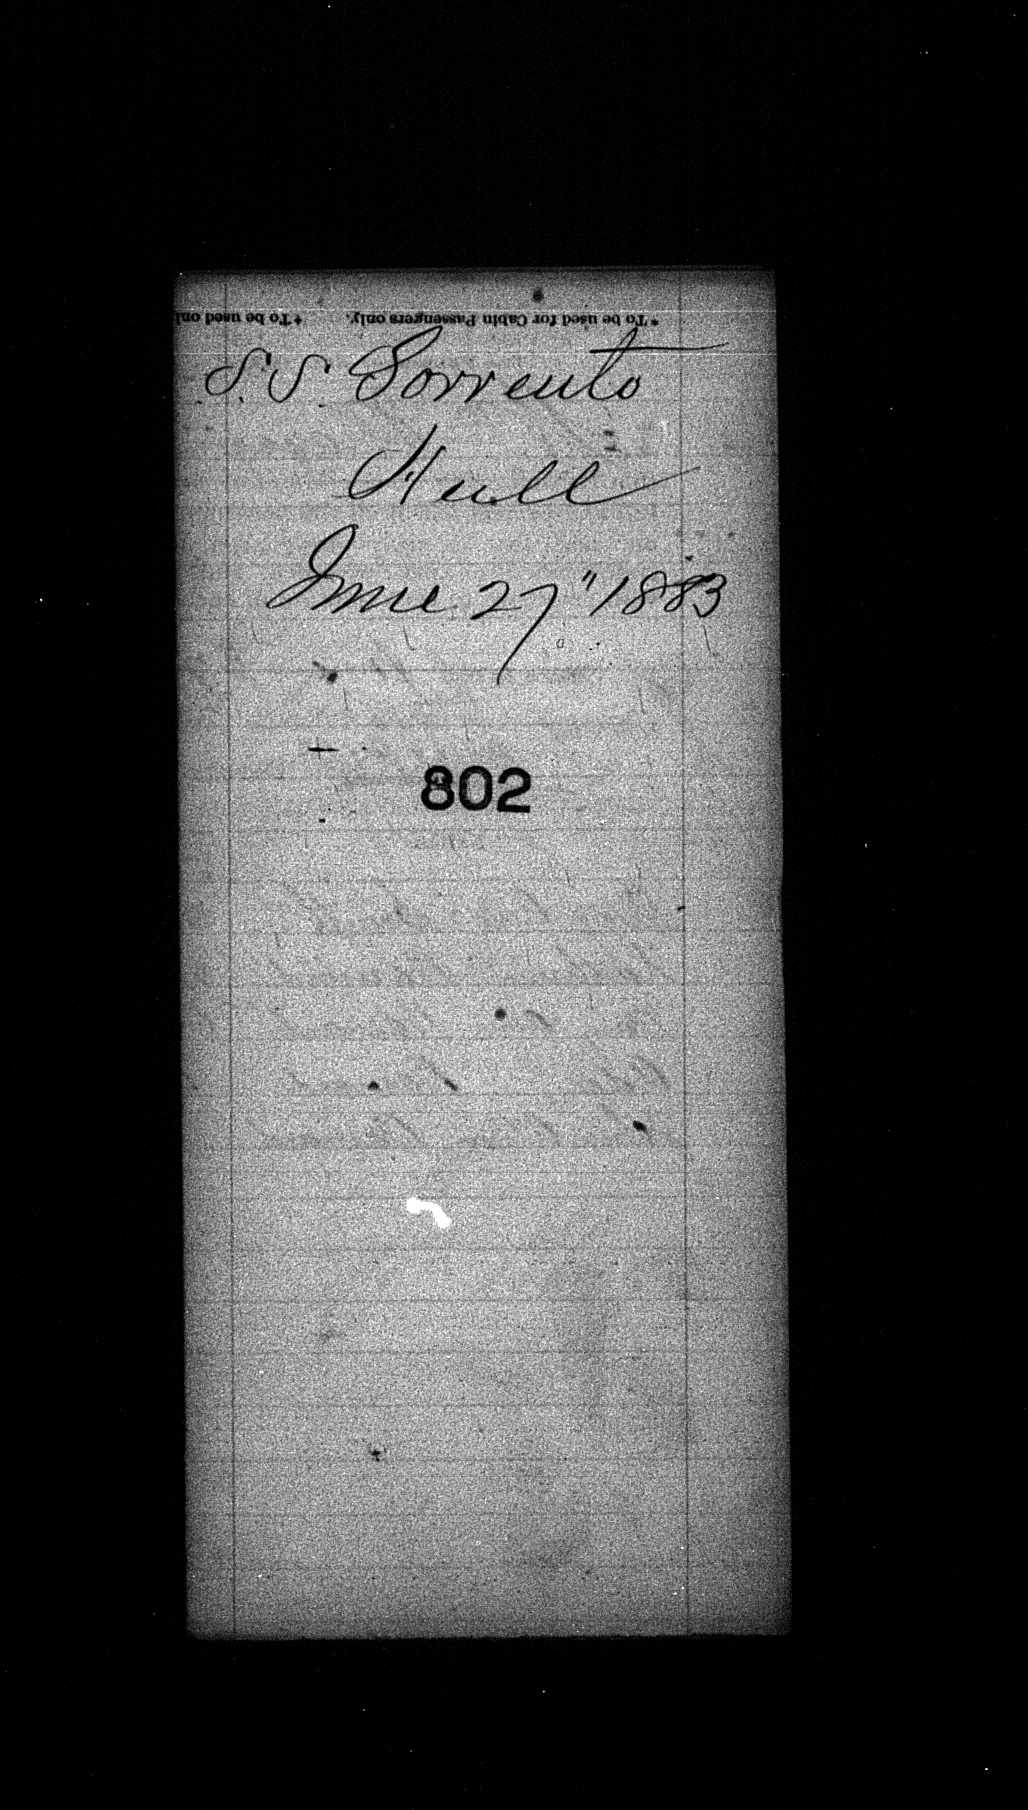 *To be used for Cabin Passengers only. †To be used onl
S.S. Sorrento
Hull
June 27" 1883
802